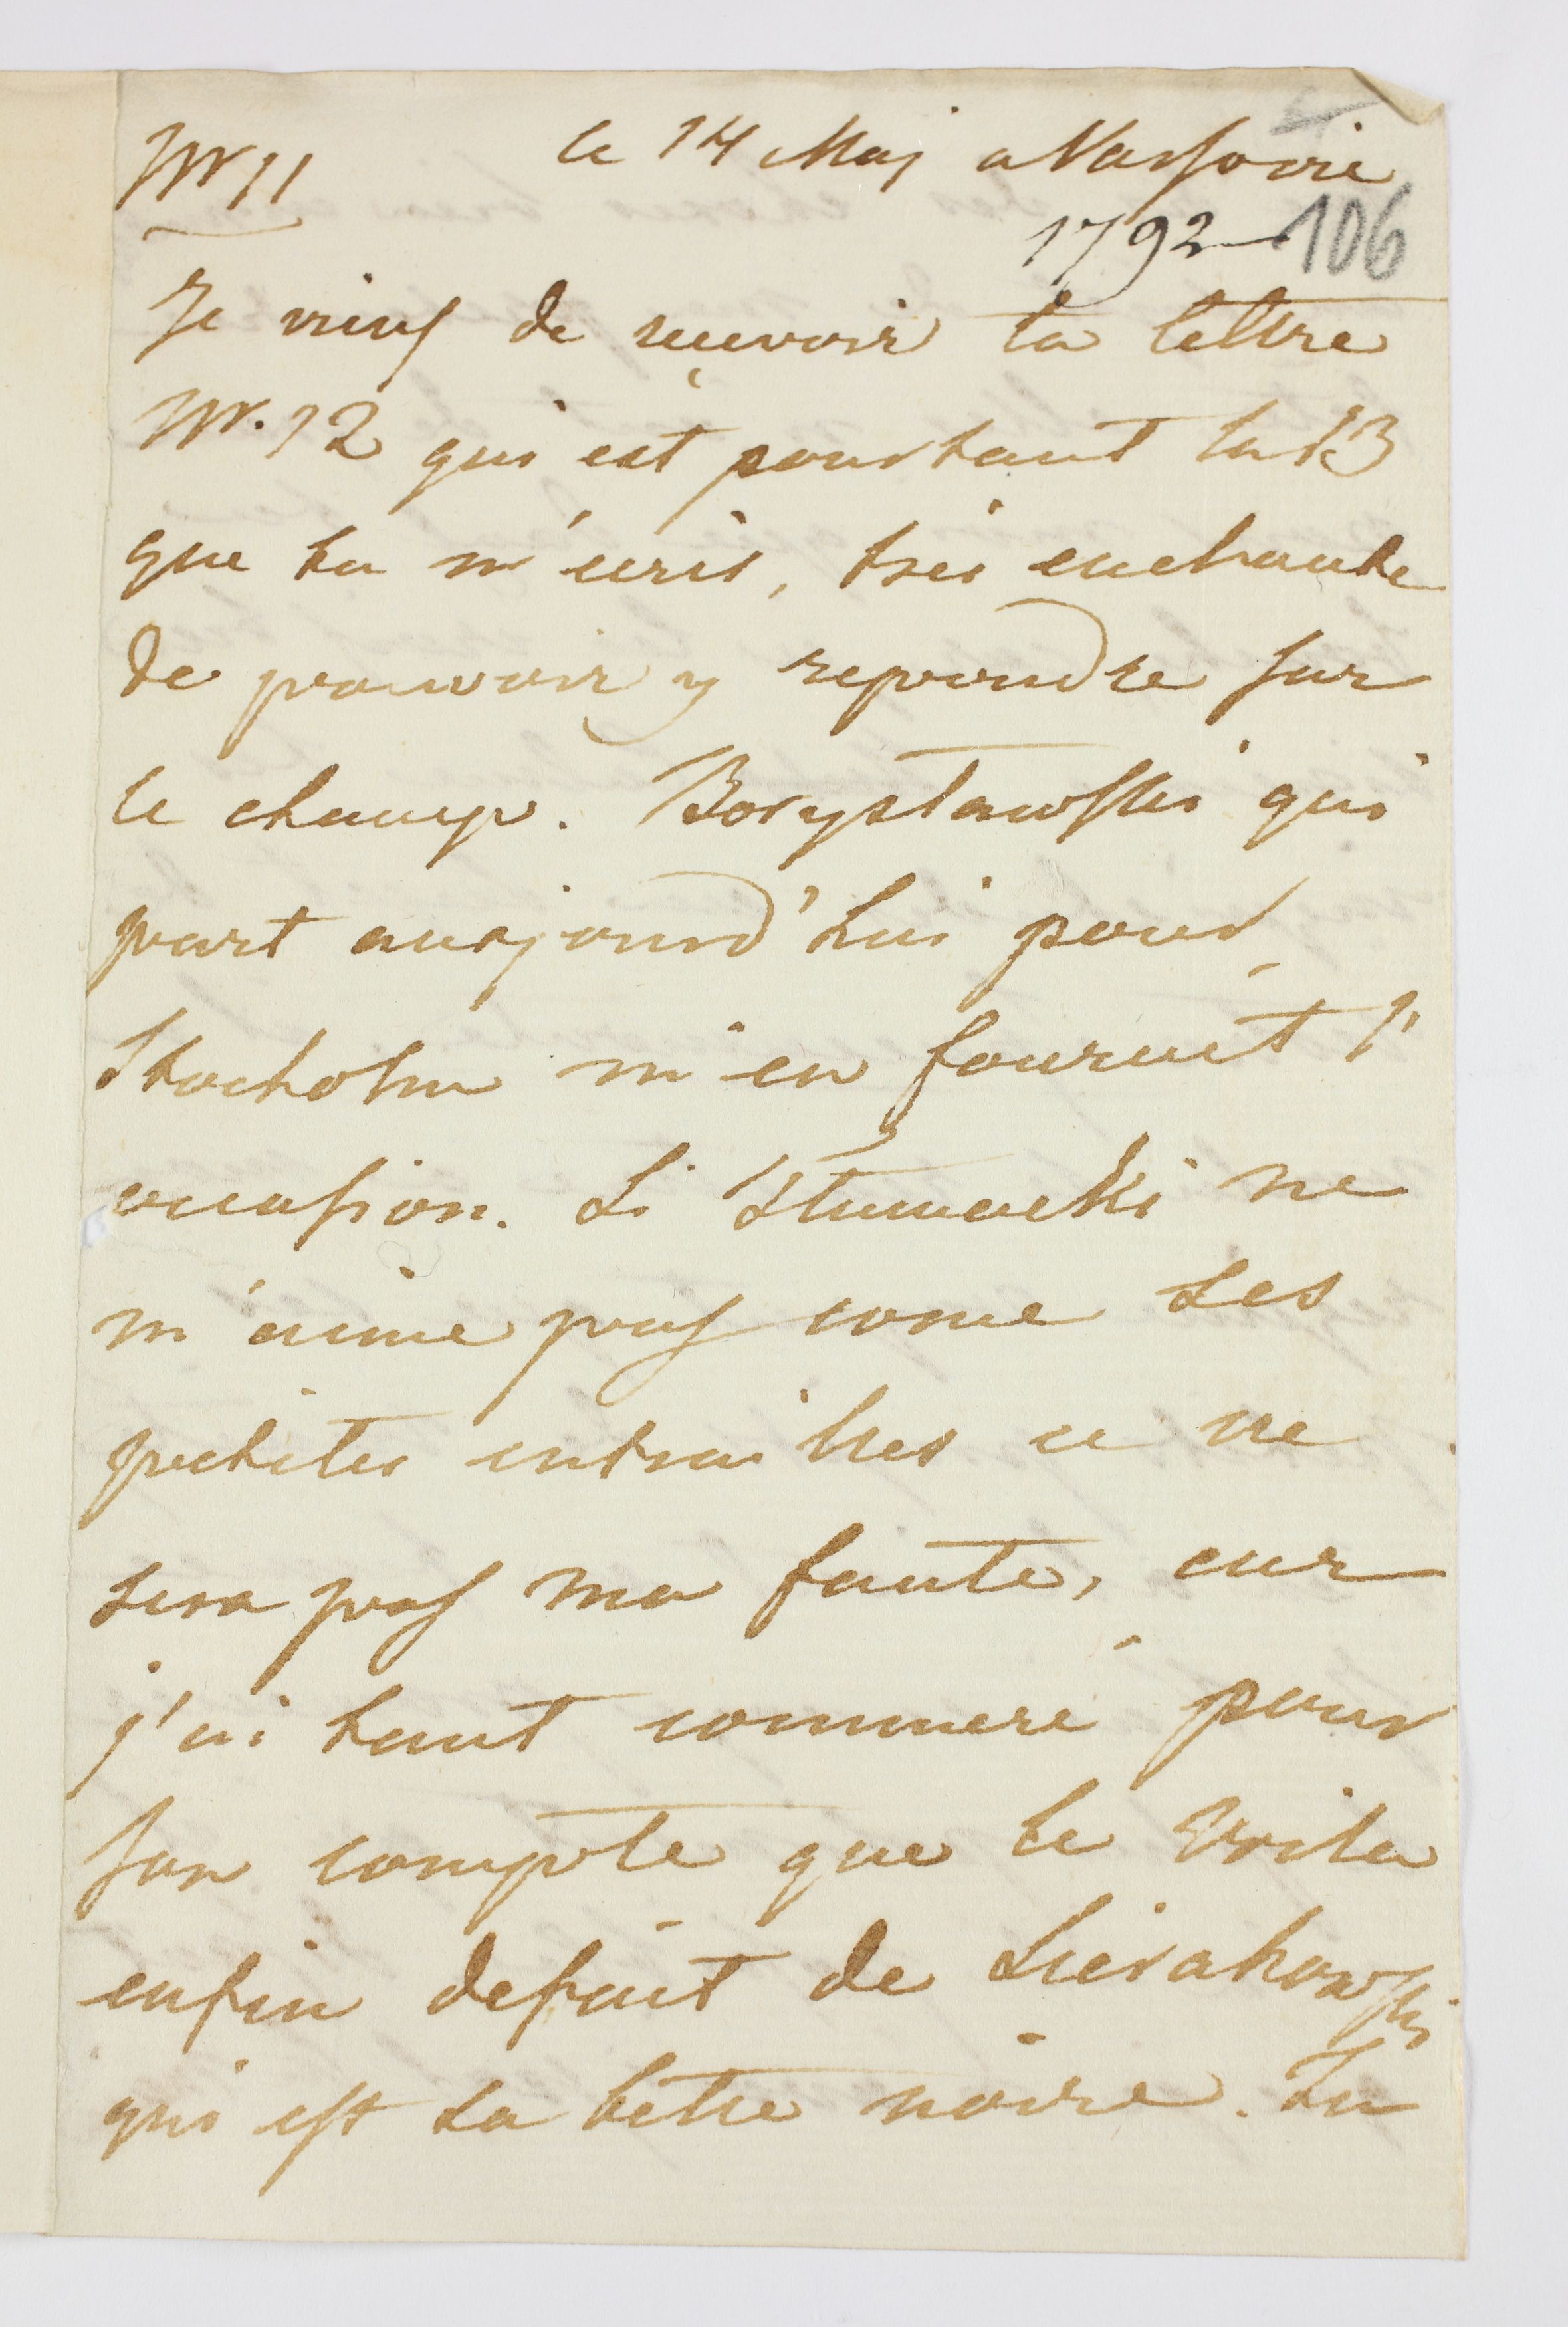 Nr 11 le 14 Maj a Varsovie
1792 106
Je viens de recevoir ta lettre
Nr. 12 qui est pourtant la 13
que tu m'ecris, tres enchante
de pouvoir y repondre sur
le champ. Borystawski qui
part aujourd'hui pour
Stocholm m'en fournit l'
occasion. Si Stumacki ne
m'aime pas come ses
petites entrailles ce ne
sera pas ma faute, car
j'ai tant commeré pour
son compte que le voila
enfin defait de Sierakowski
qui est sa bètte noire. Tu